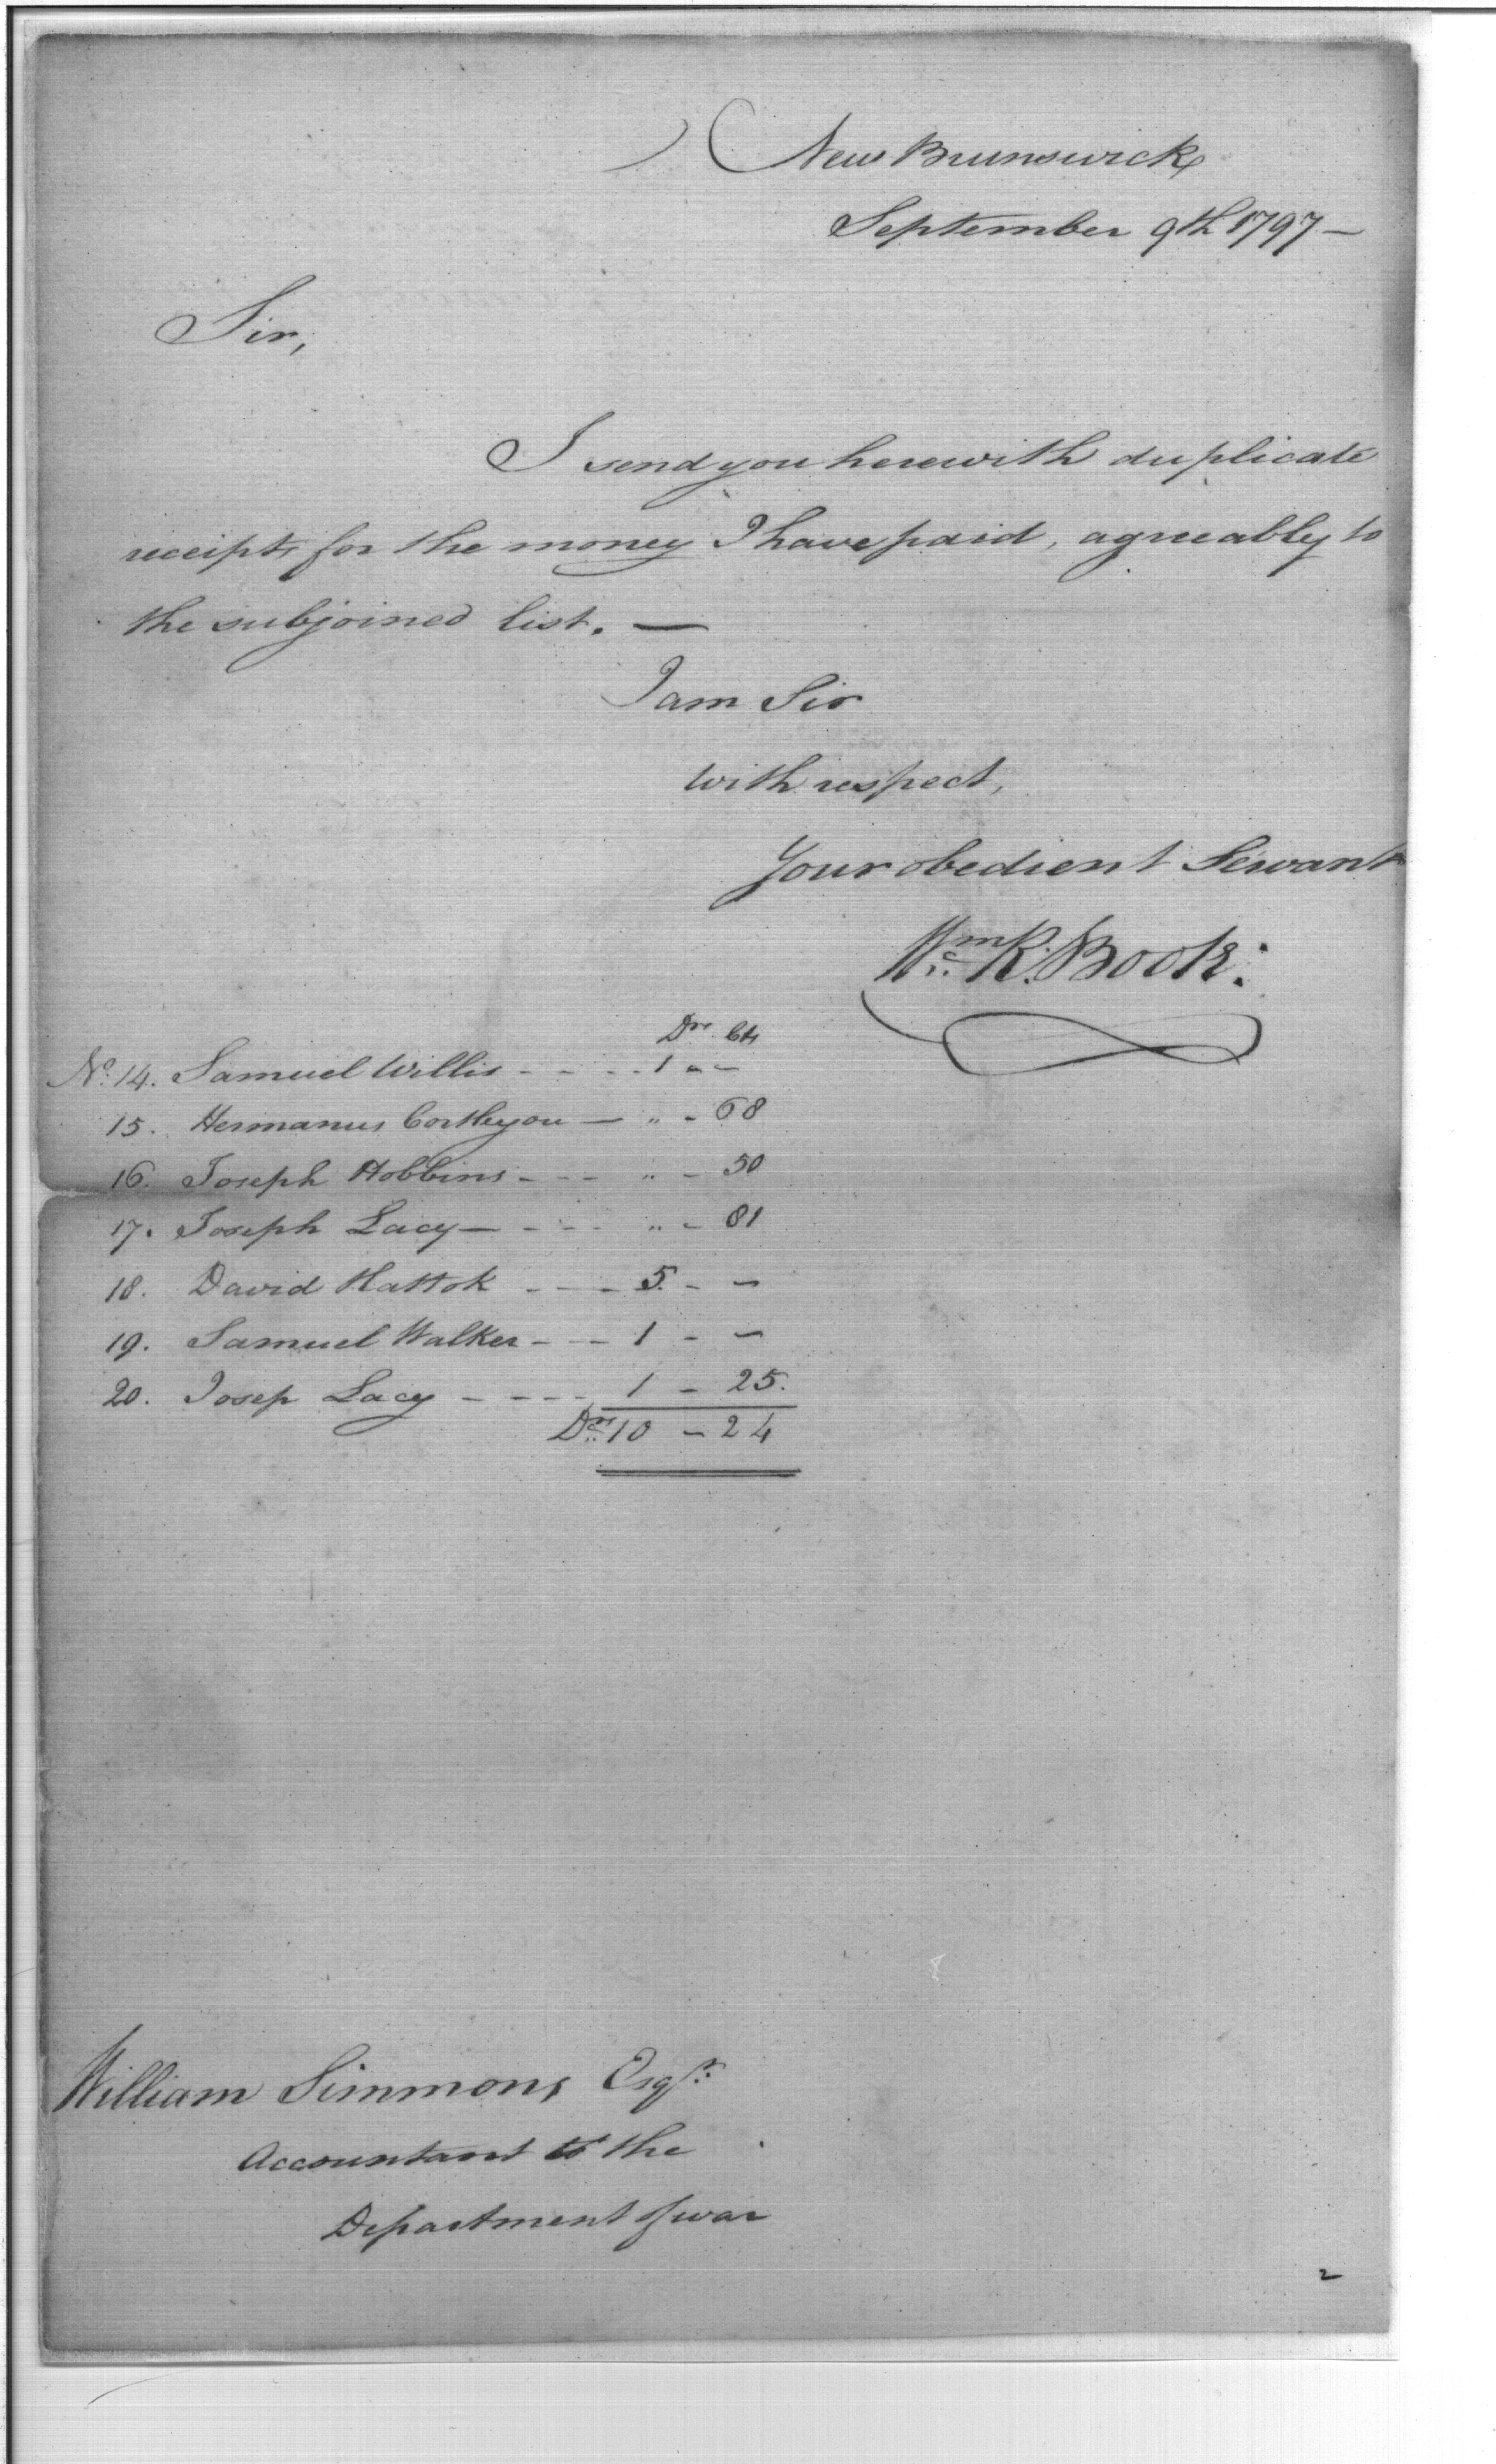 New Brunswick
September 9th 1797 —
Sir,
I send you herewith duplicate
receipts for the money I have paid, agreeably to
the subjoined list. —
I am Sir
with respect,
Your obedient Servant
Wm R. Book:
Drs Cts
No. 14. Samuel Willis - - - - 1 - -
15. Hermanus Cortleyou — " - 68
16. Joseph Hobbins - - - " - 50
17. Joseph Lacy — - - - " - 81
18. David Hattok - - - 5. - -
19. Samuel Walker - - 1 - -
20. Josep Lacy - - - - 1 - 25.
Drs 10 - 24
William Simmons Esqr.
Accountant to the
Department of war
2